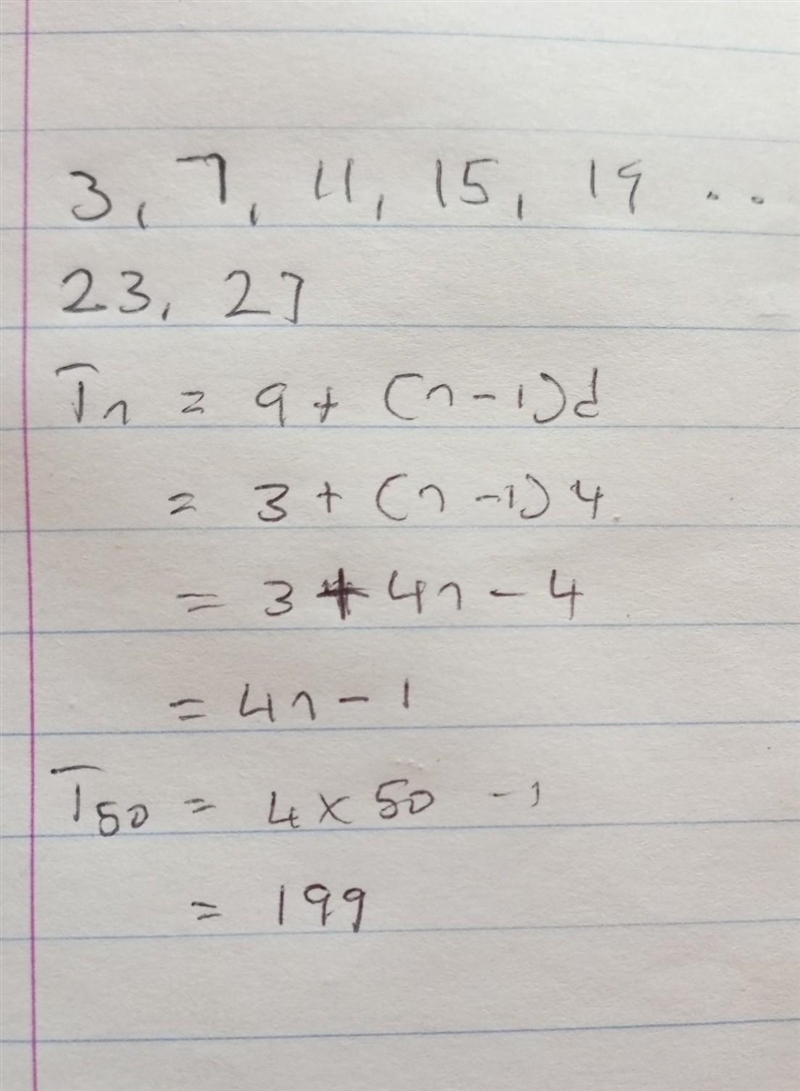 3, 7, 11, 15, 19 ..
23, 27
Tn = a + (n - 1)d
= 3 + (n - 1) 4
= 3 + 4n - 4
= 4n - 1
T50 = 4 x 50 - 1
= 199